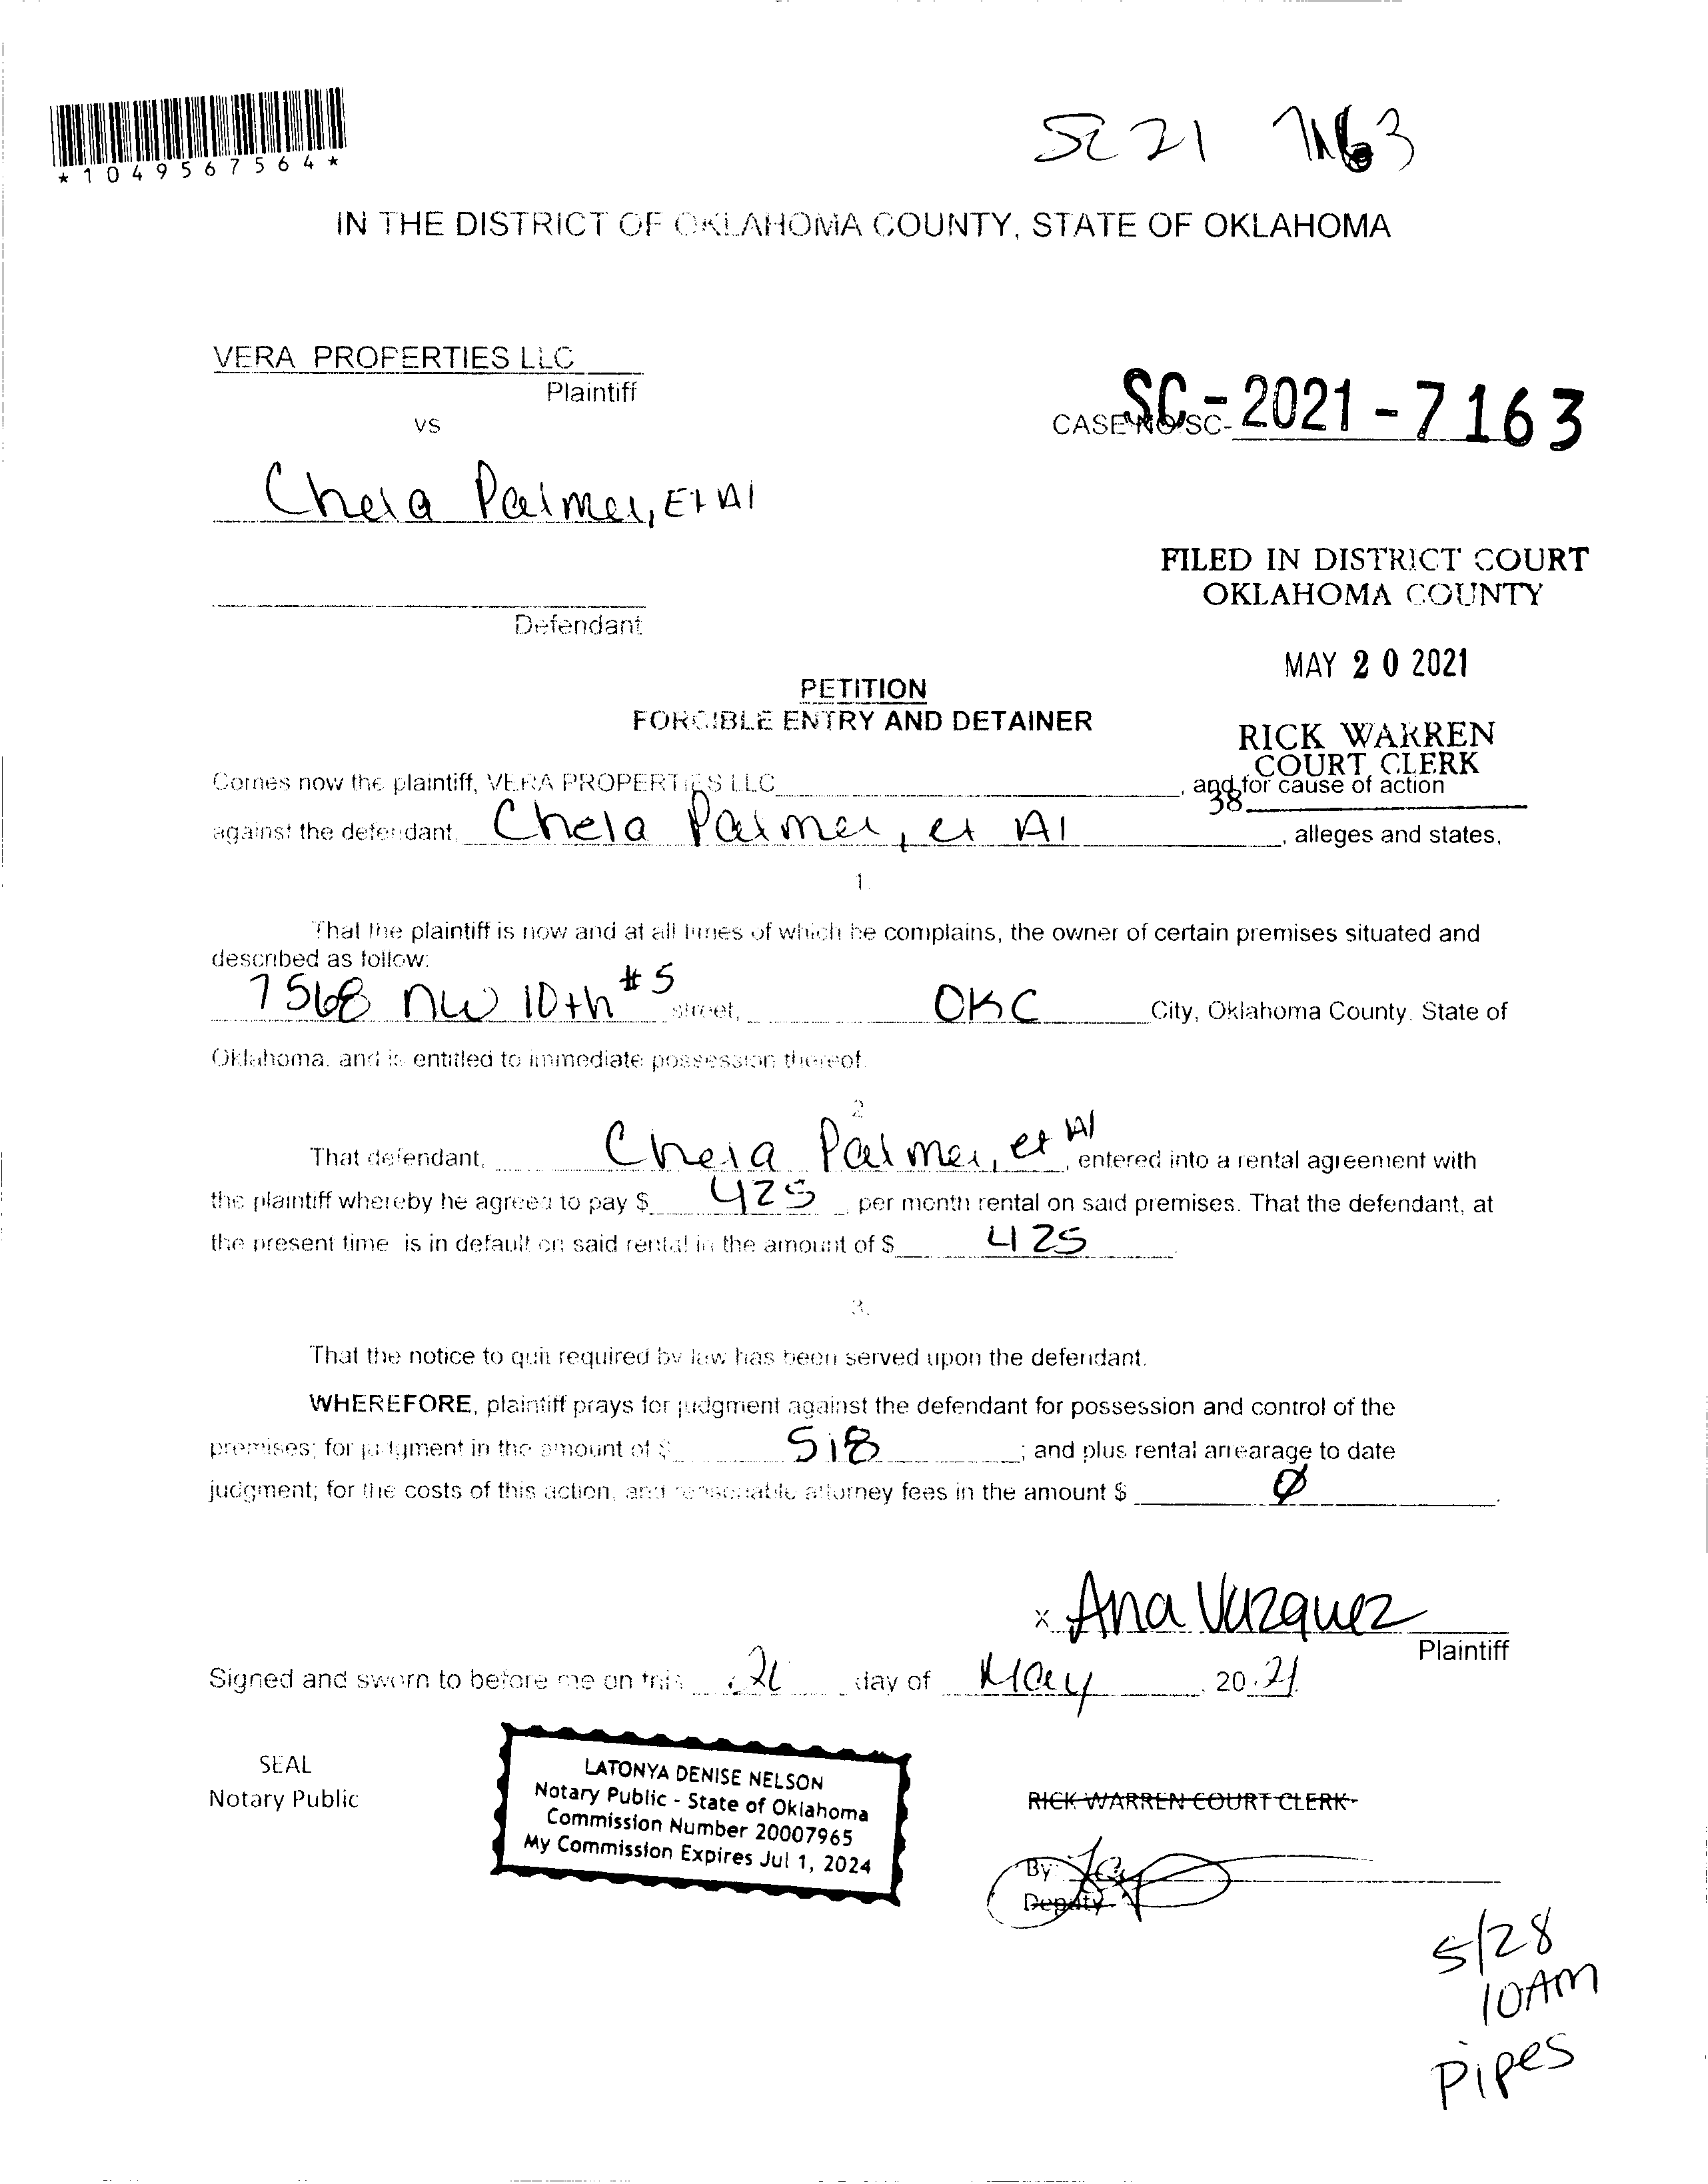 *1049567564*
SC 21 7163
IN THE DISTRICT OF OKLAHOMA COUNTY, STATE OF OKLAHOMA
VERA PROPERTIES LLC
Plaintiff
VS
CASE NO SC- SC-2021-7163
Palmer, Et Al
FILED IN DISTRICT COURT
OKLAHOMA COUNTY
Defendant
MAY 20 2021
PETITION
FORCIBLE ENTRY AND DETAINER
RICK WARREN
COURT CLERK
38
Comes now the plaintiff, VERA PROPERTIES LLC, and for cause of action
against the defendant, Chela Palmer, et Al, alleges and states,
1.
That the plaintiff is now and at all times of which he complains, the owner of certain premises situated and
described as follow:
7568 NW 10th #5 street, OKC City, Oklahoma County, State of
Oklahoma, and is entitled to immediate possession thereof.
2
That defendant, Palmer, et Al, entered into a rental agreement with
the plaintiff whereby he agreed to pay $ 425 per month rental on said premises. That the defendant, at
the present time is in default on said rental in the amount of $ 425.
3.
That the notice to quit required by law has been served upon the defendant.
WHEREFORE, plaintiff prays for judgment against the defendant for possession and control of the
premises; for judgment in the amount of $ 518; and plus rental arrearage to date
judgment; for the costs of this action, and reasonable attorney fees in the amount $ Ø.
x Ana Vazquez
Plaintiff
Signed and sworn to before me on this day of May, 20 21
SEAL
Notary Public
LATONYA DENISE NELSON
Notary Public - State of Oklahoma
Commission Number 20007965
My Commission Expires Jul 1, 2024
RICK WARREN COURT CLERK
By:
Deputy
5/28
10AM
Pipes